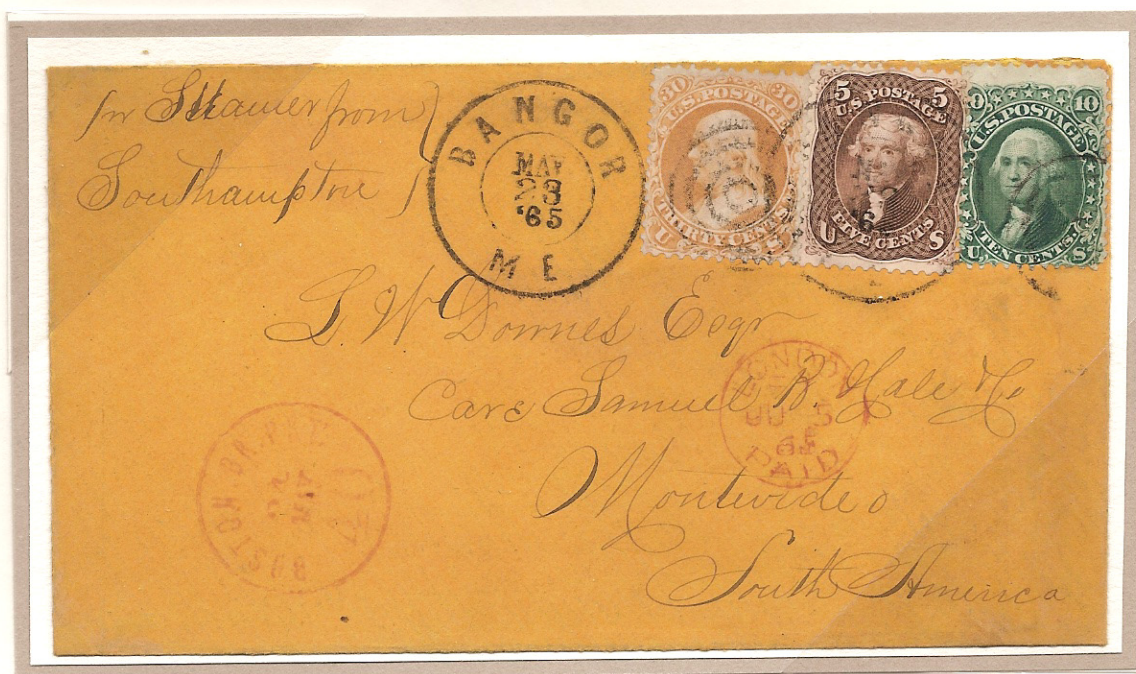 pr Steamer from
Southampton
BANGOR
MAY
28
'65
ME
30 30
U.S. POSTAGE
THIRTY CENTS
U S
5 5
U.S. POSTAGE
FIVE CENTS
U S
10
U.S. POSTAGE
TEN CENTS
U S
S W Downes Esqr
Care Samuel B. Hale & Co
Montevideo
South America
LONDON
JU 5
65
PAID
BOSTON. BR. PKT.
MAY